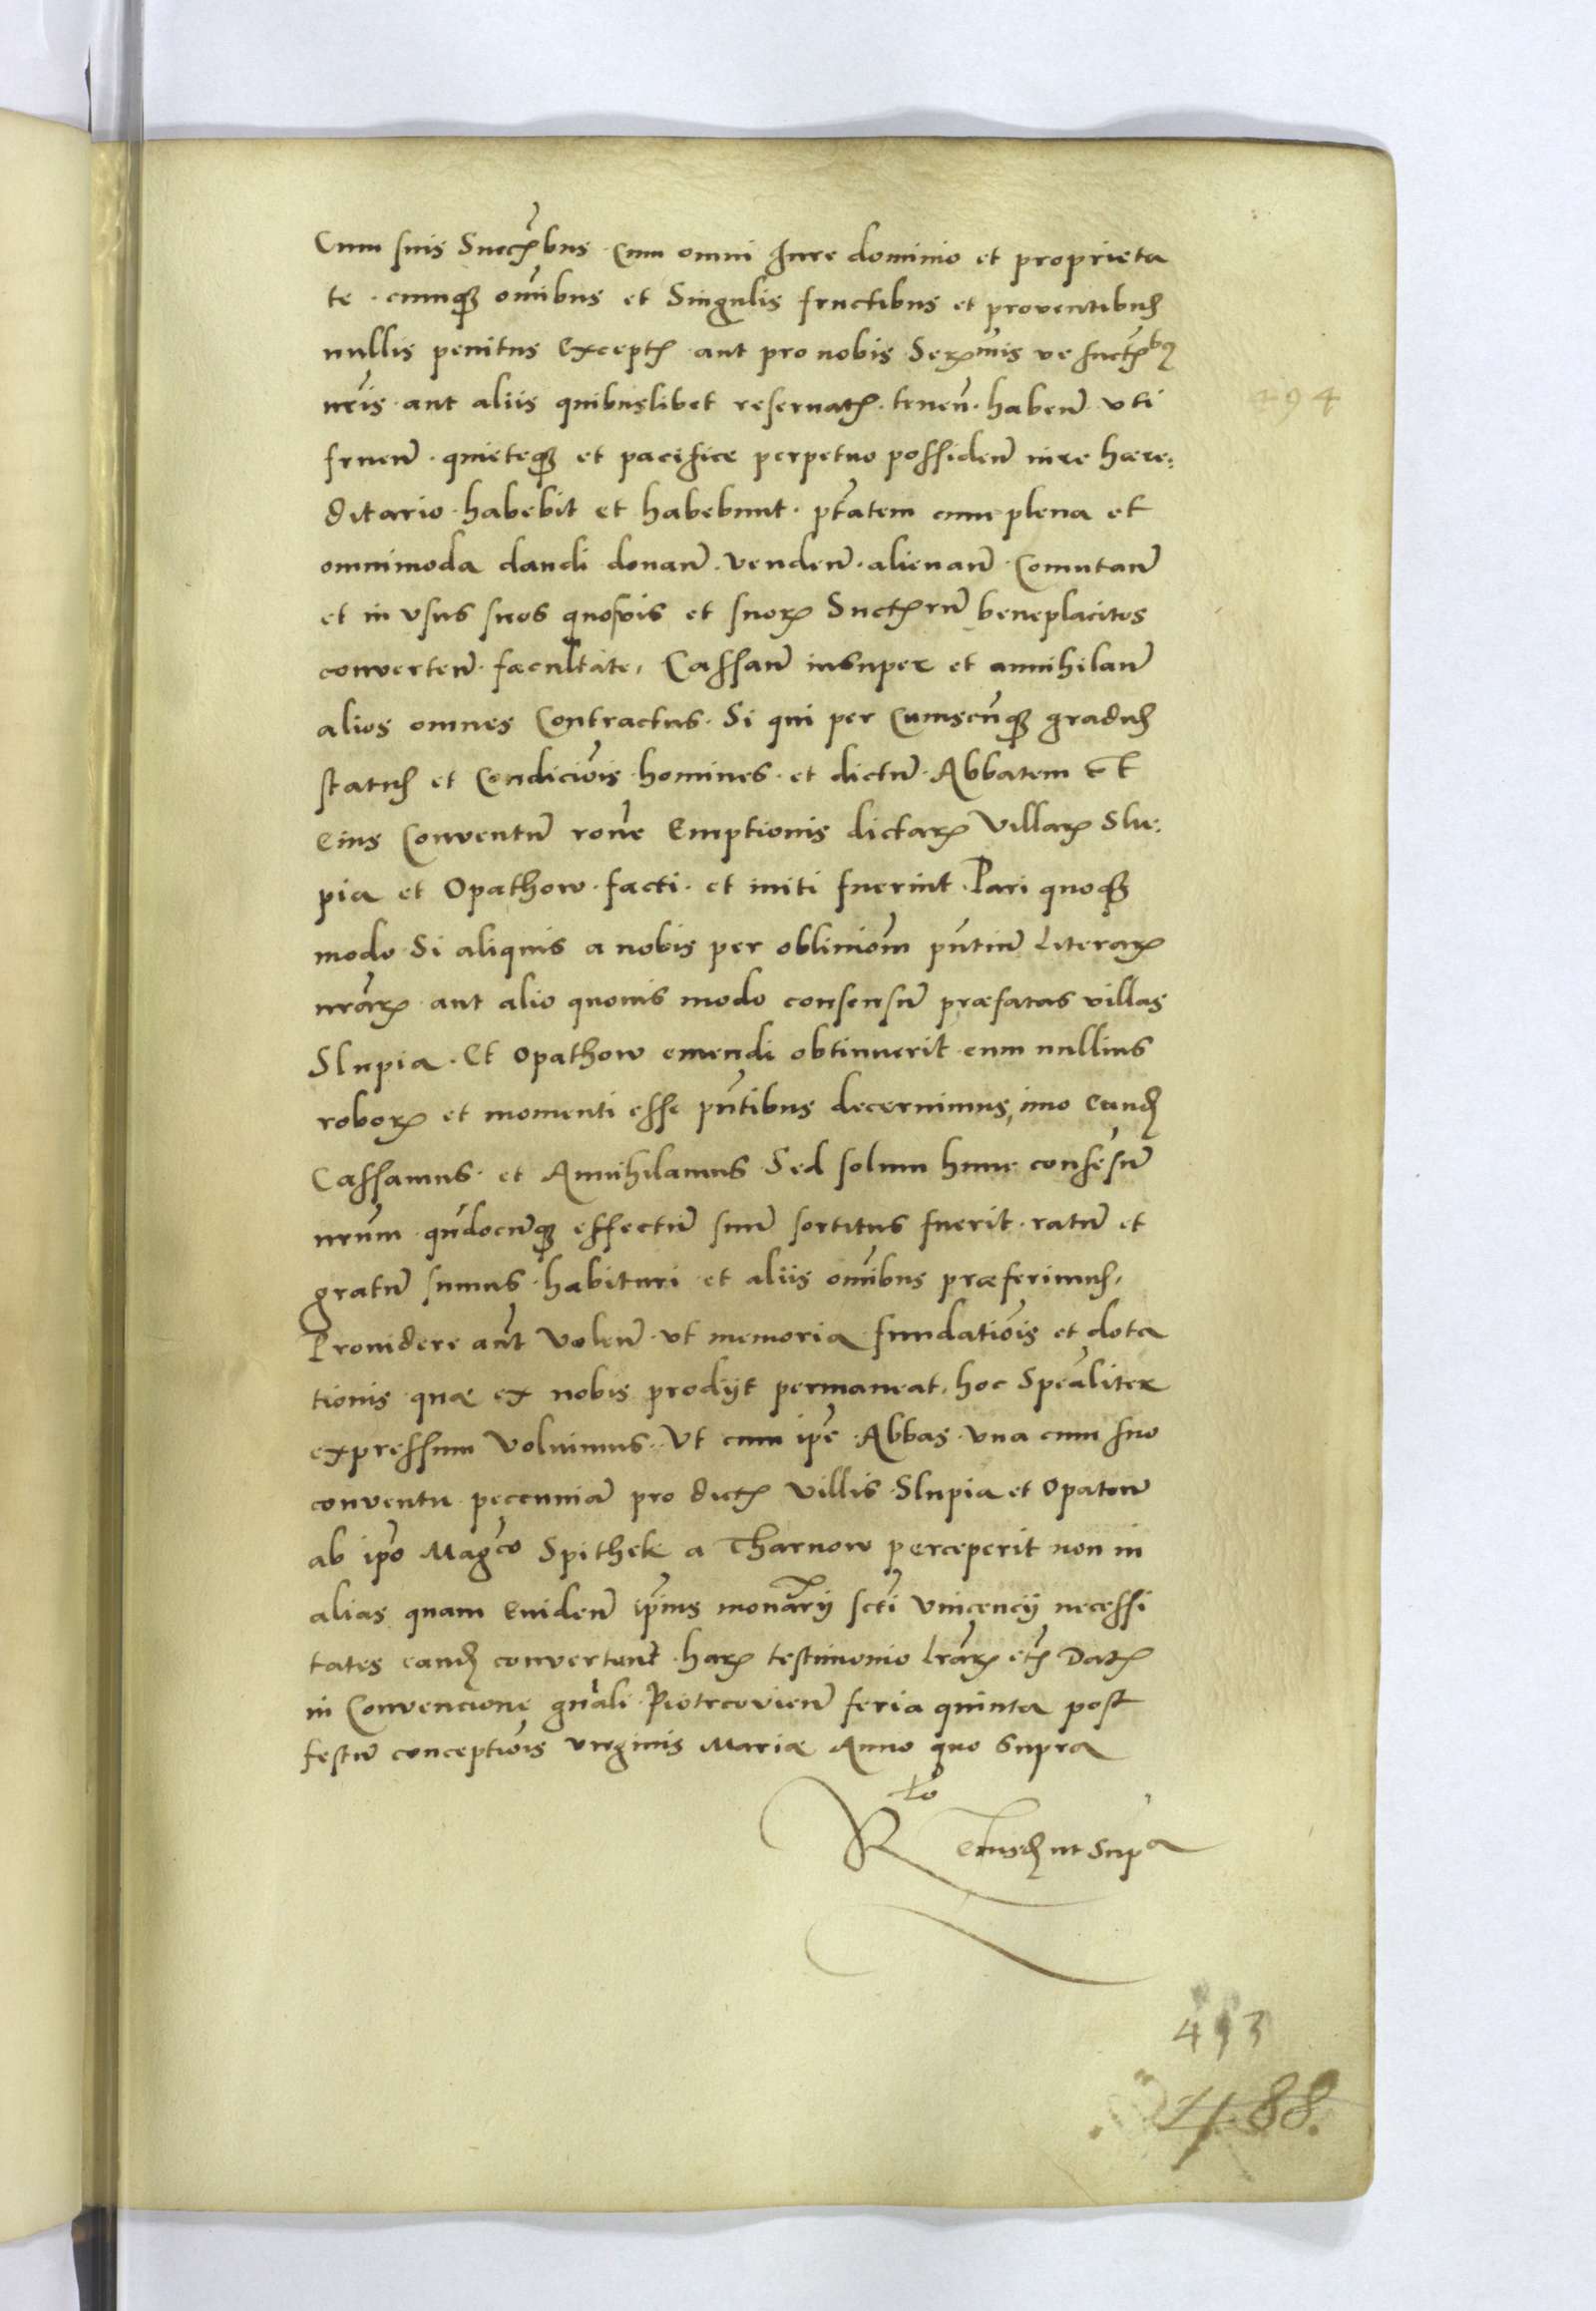 Cum suis Succꝭbus cum omni Jure dominio et proprieta
te . cumqꝫ om̃ibus et Singulis fructibus et proventibus
nullis penitus Exceptꝭ aut pro nobis Serꝭm̃is ve succꝭbꝫ
nr̃is aut aliis quibuslibet reservatꝭ . teneñ . habeñ . vti
frueñ . quieteqꝫ et pacifice perpetuo possideñ iure hære:
ditario . habebit et habebunt . pt̃atem cum plena et
omnimoda dandi donañ . vendeñ . alienañ . Comutañ
et in vsus suos quosvis et suorꝫ Succꝭrũ beneplacitos
converteñ . facultate, Cassañ insuper et annihilañ
alios omnes Contractus . Si qui per Cuiuscũqꝫ gradus
status et Condiciõis homines . et dictũ . Abbatem et
Eius Conventũ rõne Emptionis dictarꝫ Villarꝫ Slu:
pia et Opathow . facti . et initi fuerint . Pari quoqꝫ
modo Si aliquis a nobis per obliuiom̃ pñtiũ literarꝫ
nr̃arꝫ aut alio quouis modo consensũ præfatas villas
Slupia . Et Opathow emendi obtinuerit . eum nullius
roborꝫ et momenti esse pñtibus decernimus, imo Eundꝫ
Cassamus . et Annihilamus Sed solum hunc consẽsũ
nr̃um . qũdocũqꝫ effectũ suũ sortitus fuerit . ratũ et
gratũ sumus . habituri et aliis om̃ibus præferimus,
Prouidere aũt Voleñ . vt memoria fundatiõis et dota
tionis quæ ex nobis prodijt permaneat, hoc Speãliter
expressum Voluimus . Vt cum ip̃e . Abbas . vna cum suo
conventu pecuniã pro dictꝭ Villis . Slupia et Opatow
ab ip̃o Mag̃co Spithek a Tharnow perceperit non in
alias quam Euideñ ip̃ius monãrij sc̃ti Vincencij necessi
tates eandꝫ convertant . harꝫ testimonio lr̃arꝫ etꝭ Datꝭ
in Convencione gñali Piotrcovieñ feria quinta post
festũ conceptiõis virginis Mariæ Anno quo Supra
R tio Eiusdꝫ ut Supª
494
493
488.